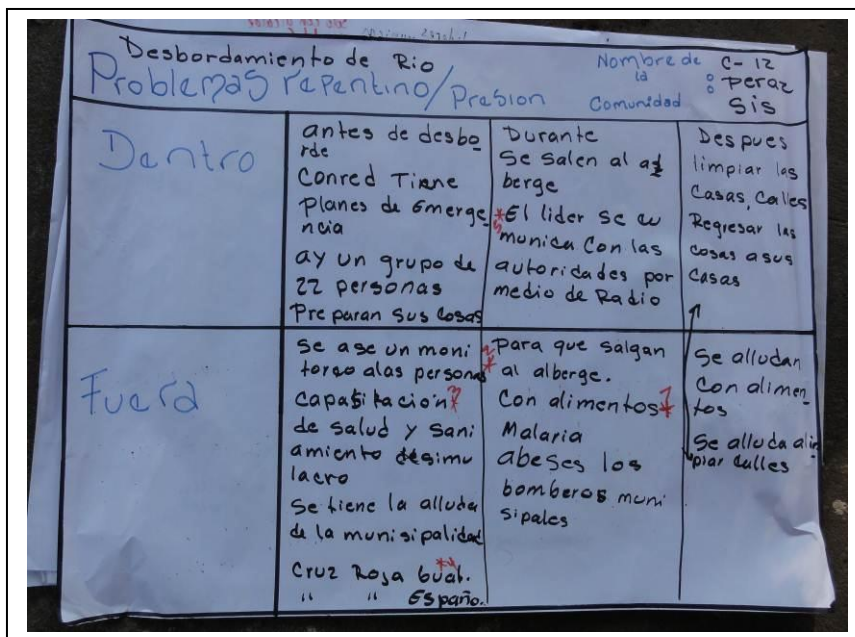 Desbordamiento de Rio
Problemas repentino/Presion
Nombre de
la
Comunidad
:
C-12
Peraz
Sis
Dentro
antes de desbo
rde
Conred Tiene
Planes de Emerge
ncia
ay un grupo de
22 personas
Preparan sus cosas
Durante
Se salen al al
berge
*5 El lider se co
munica Con las
autoridades por
medio de Radio
Despues
limpiar las
Casas, Calles
Regresar las
cosas a sus
Casas
Fuera
Se ase un moni
toreo alas personas
Capasitacion *3
de salud y Sani
amiento desimu
lacro
Se tiene la alluda
de la munisipalidad
Cruz Roja Guat. *4
" " Españo.
*2 Para que salgan
al alberge.
Con alimentos *1
Malaria
abeses los
bomberos muni
sipales
Se alludan
Con alimen
tos
Se alluda alim
piar calles